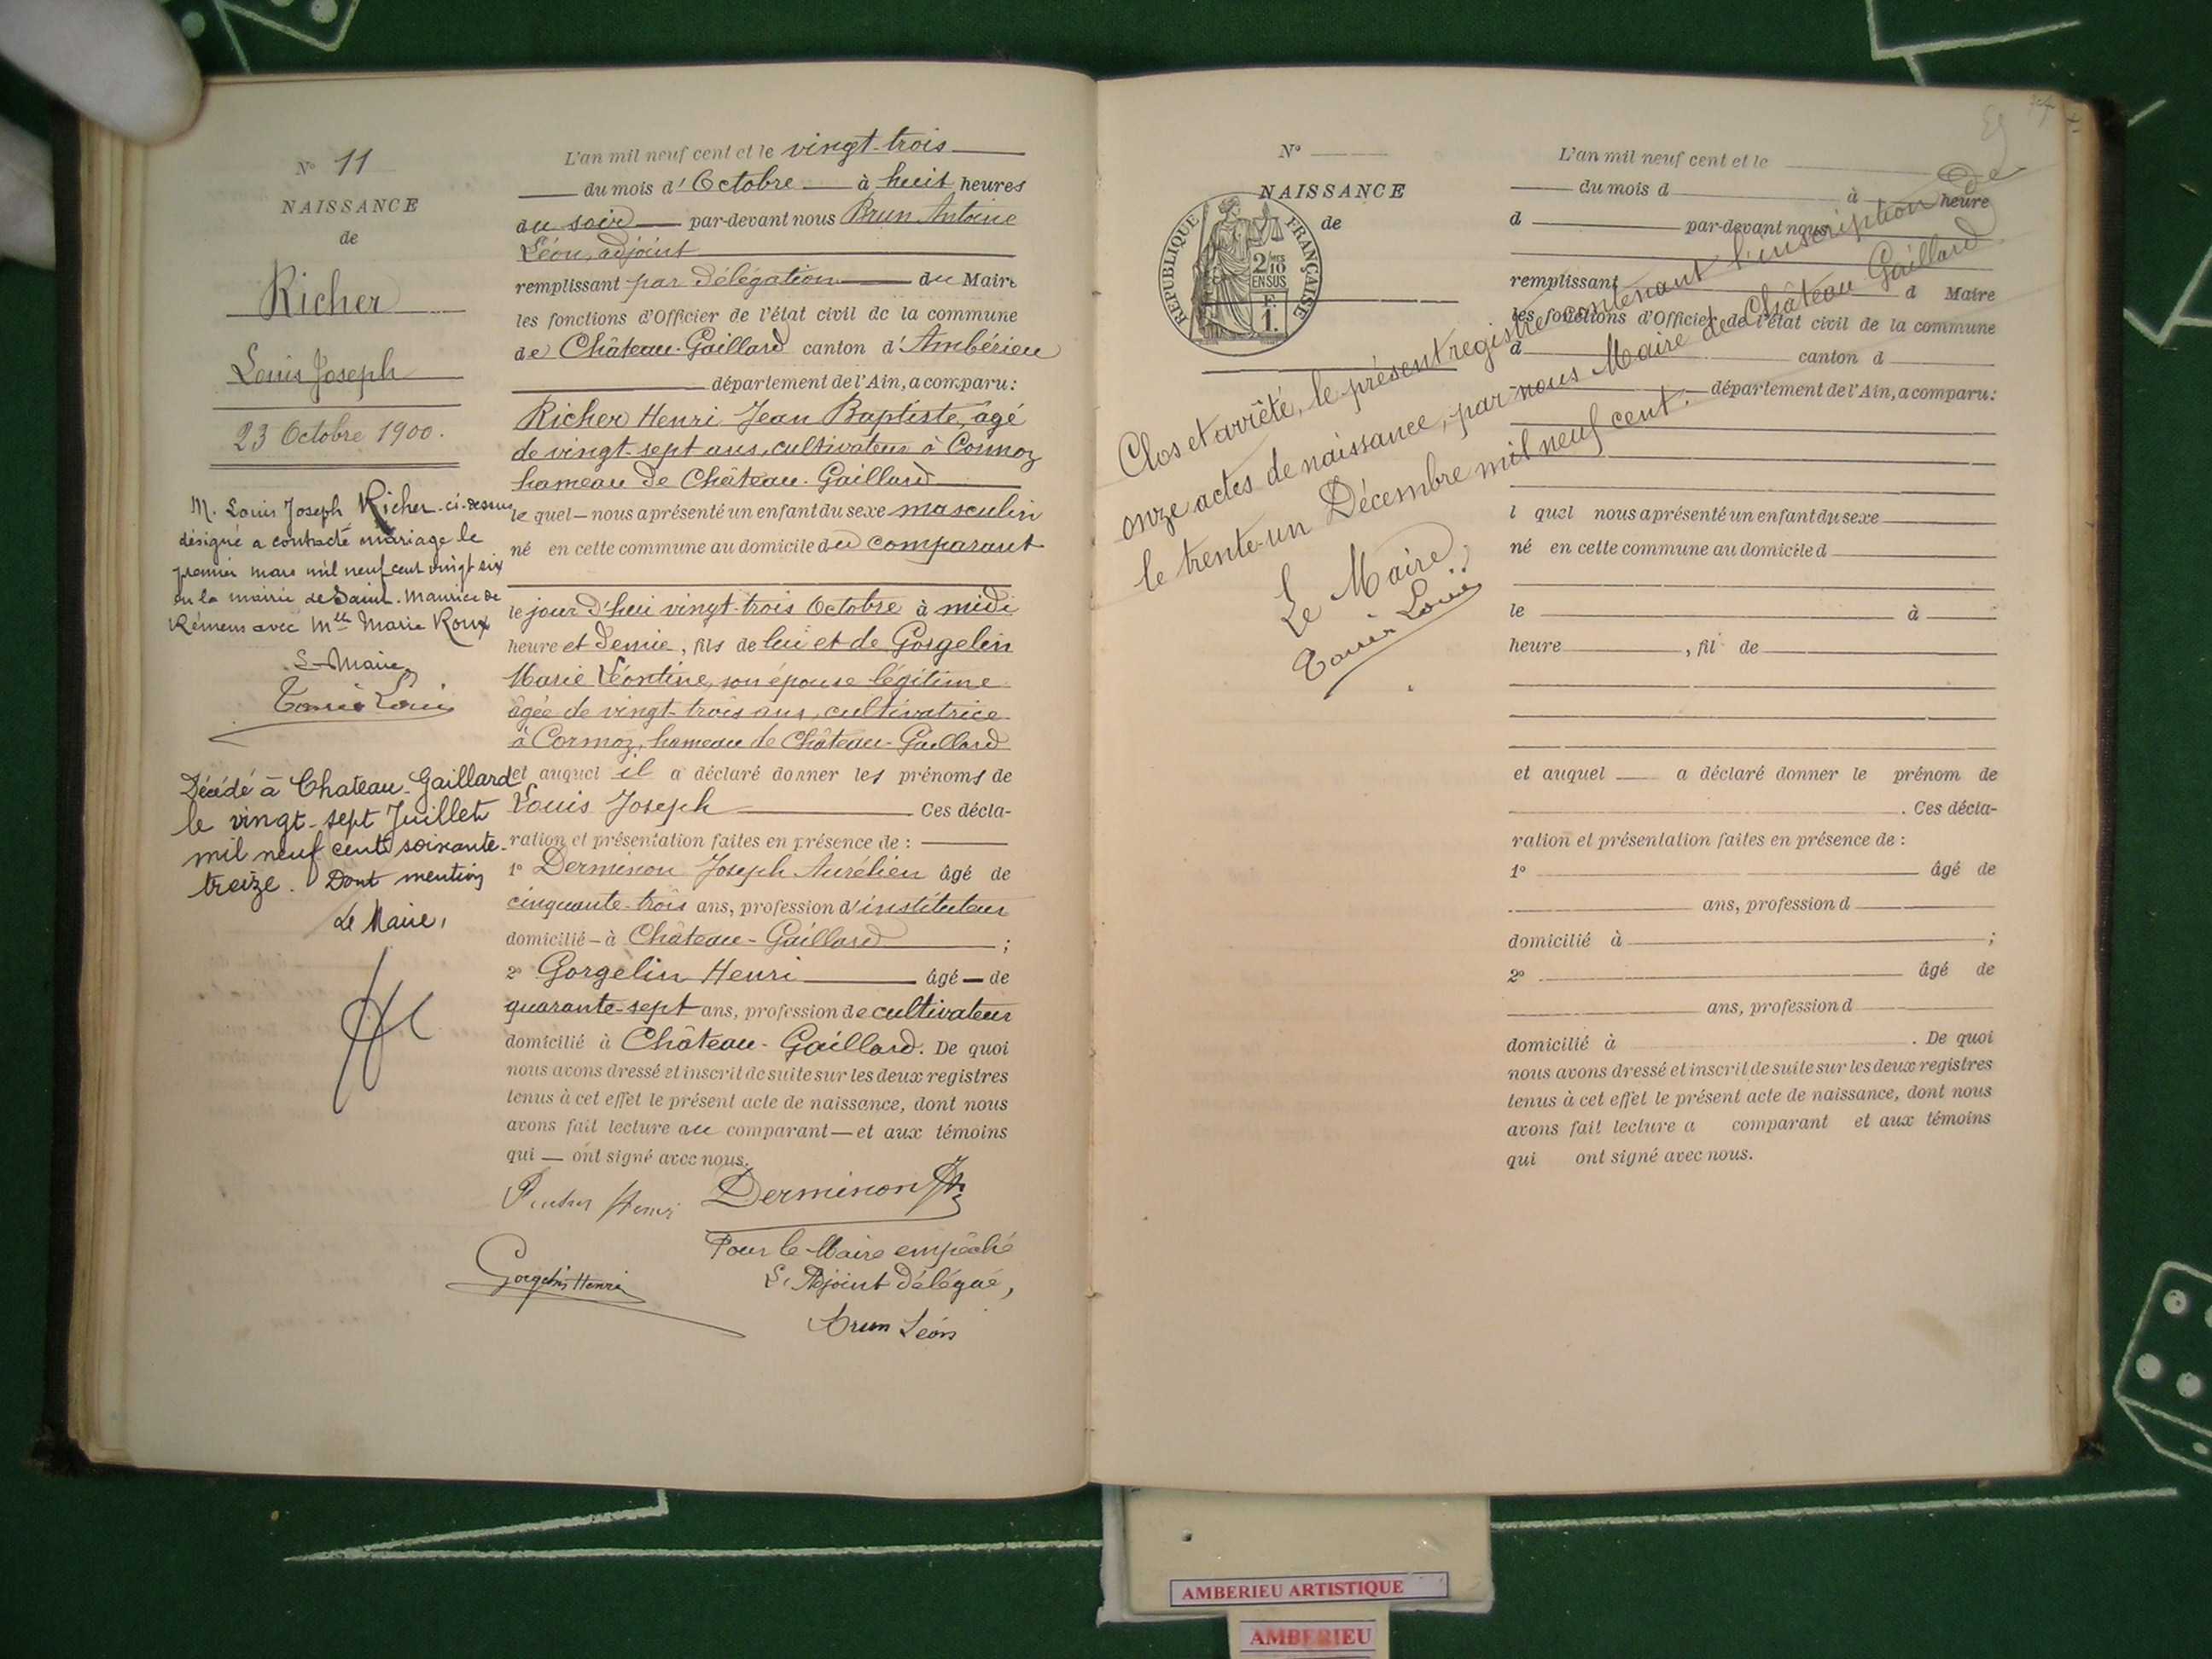 N° 11
NAISSANCE
de
Richer
Louis Joseph
23 Octobre 1900.
M. Louis Joseph Richer ci-dessus
désigné a contracté mariage le
premier mars mil neuf cent vingt six
en la mairie de Saint-Maurice de
Rémens avec Mlle Marie Roux
Le Maire,
Décédé à Chateau-Gaillard
le vingt-sept Juillet
mil neuf cent soixante-
treize. Dont mention
Le Maire,
L'an mil neuf cent et le vingt-trois
du mois d'Octobre à huit heures
du soir par-devant nous Brun Antoine
Léon, adjoint
remplissant par délégation du Maire
les fonctions d'Officier de l'état civil de la commune
de Château-Gaillard canton d'Ambérieu
département de l'Ain, a comparu:
Richer Henri Jean Baptiste, âgé
de vingt-sept ans, cultivateur à Cormoz
hameau de Château-Gaillard
le quel nous a présenté un enfant du sexe masculin
né en cette commune au domicile du comparant
le jour d'hui vingt-trois Octobre à midi
heure et demie, fils de lui et de Gorgelin
Marie Léontine, son épouse légitime
âgée de vingt-trois ans, cultivatrice
à Cormoz, hameau de Château-Gaillard
et auquel il a déclaré donner les prénoms de
Louis Joseph Ces décla-
ration et présentation faites en présence de :
1° Derminon Joseph Aurélien âgé de
cinquante-trois ans, profession d'instituteur
domicilié à Château-Gaillard ;
2° Gorgelin Henri âgé de
quarante-sept ans, profession de cultivateur
domicilié à Château-Gaillard. De quoi
nous avons dressé et inscrit de suite sur les deux registres
tenus à cet effet le présent acte de naissance, dont nous
avons fait lecture au comparant et aux témoins
qui ont signé avec nous.
Richer Henri Derminon
Pour le Maire empêché
Gorgelin Henri
L'Adjoint délégué,
Brun Léon
N°
NAISSANCE
de
REPUBLIQUE FRANÇAISE
2/10
EN SUS
1F.
L'an mil neuf cent et le
du mois d à heure
d par-devant nous
remplissant d Maire
les fonctions d'Officier de l'état civil de la commune
d canton d
département de l'Ain, a comparu:
Clos et arrêté, le présent registre contenant l'inscription de
onze actes de naissance, par nous Maire de Château Gaillard
le trente-un Décembre mil neuf cent.
Le Maire,
l quel nous a présenté un enfant du sexe
né en cette commune au domicile d
le à
heure , fil de
et auquel a déclaré donner le prénom de
. Ces décla-
ration et présentation faites en présence de :
1° âgé de
ans, profession d
domicilié à ;
2° âgé de
ans, profession d
domicilié à . De quoi
nous avons dressé et inscrit de suite sur les deux registres
tenus à cet effet le présent acte de naissance, dont nous
avons fait lecture a comparant et aux témoins
qui ont signé avec nous.
AMBERIEU ARTISTIQUE
AMBERIEU